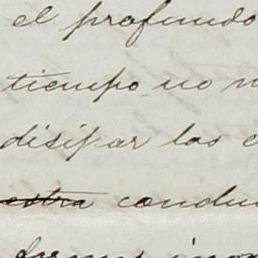 el profundo
tiempo no
disipar las
estra condu